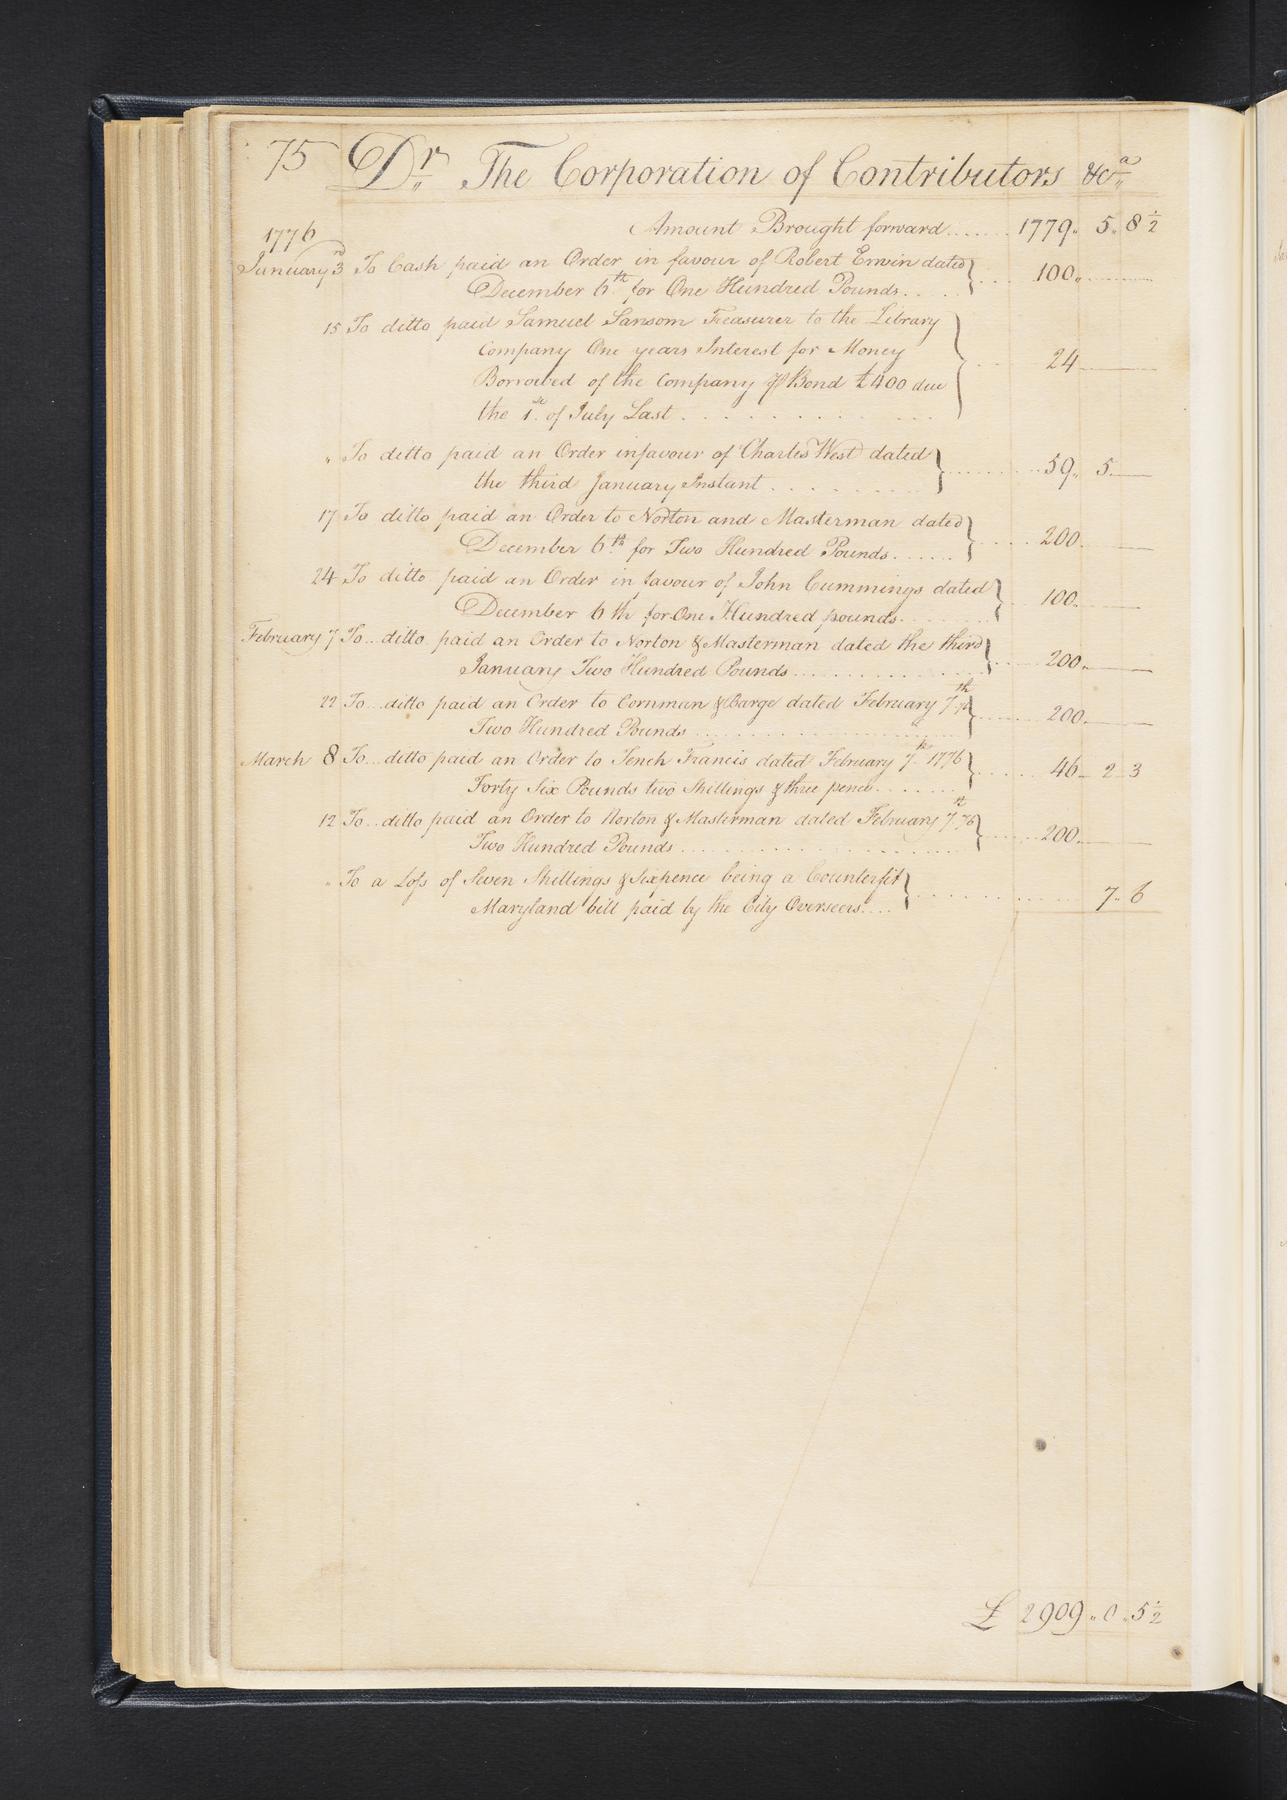 75 Dr. The Corporation of Contributors &ca
1776 Amount Brought forward...... 1779,, 5,, 8 1/2
January 3rd To Cash paid an Order in favour of Robert Erwin dated
December 6th for One Hundred Pounds.... 100,,
15 To ditto paid Samuel Sansom Treasurer to the Library
Company One years Interest for Money
Borrowed of the Company ⅌ Bond £400 due 24
the 1st of July Last . . . . . . . . . .
,, To ditto paid an Order infavour of Charles West dated
the third January Instant . . . . . . . 59,, 5
17 To ditto paid an Order to Norton and Masterman dated
December 6th for Two Hundred Pounds...... 200
24 To ditto paid an Order in favour of John Cummings dated
December 6th for One Hundred pounds....... 100
February 7 To.. ditto paid an Order to Norton & Masterman dated the third
January Two Hundred Pounds............ 200
22 To.. ditto paid an Order to Cornman & Barge dated February 7th 76
Two Hundred Pounds ............ 200
March 8 To.. ditto paid an Order to Tench Francis dated February 7th 1776
Forty Six Pounds two Shillings & three pence....... 46 2 3
12 To.. ditto paid an Order to Norton & Masterman dated February 7th 76
Two Hundred Pounds ............ 200
,, To a Loss of Seven Shillings & Sixpence being a Counterfit
Maryland bill paid by the City Overseers.... 7,, 6
£ 2909,, 0,, 5 1/2